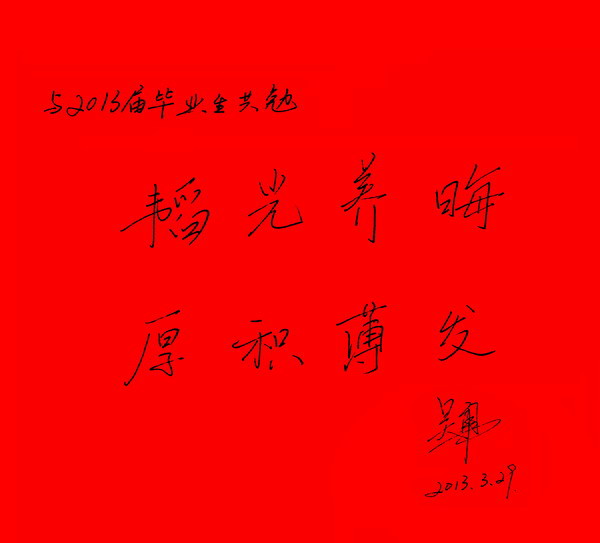 与2013届毕业生共勉
韬光养晦
厚积薄发
2013.3.29